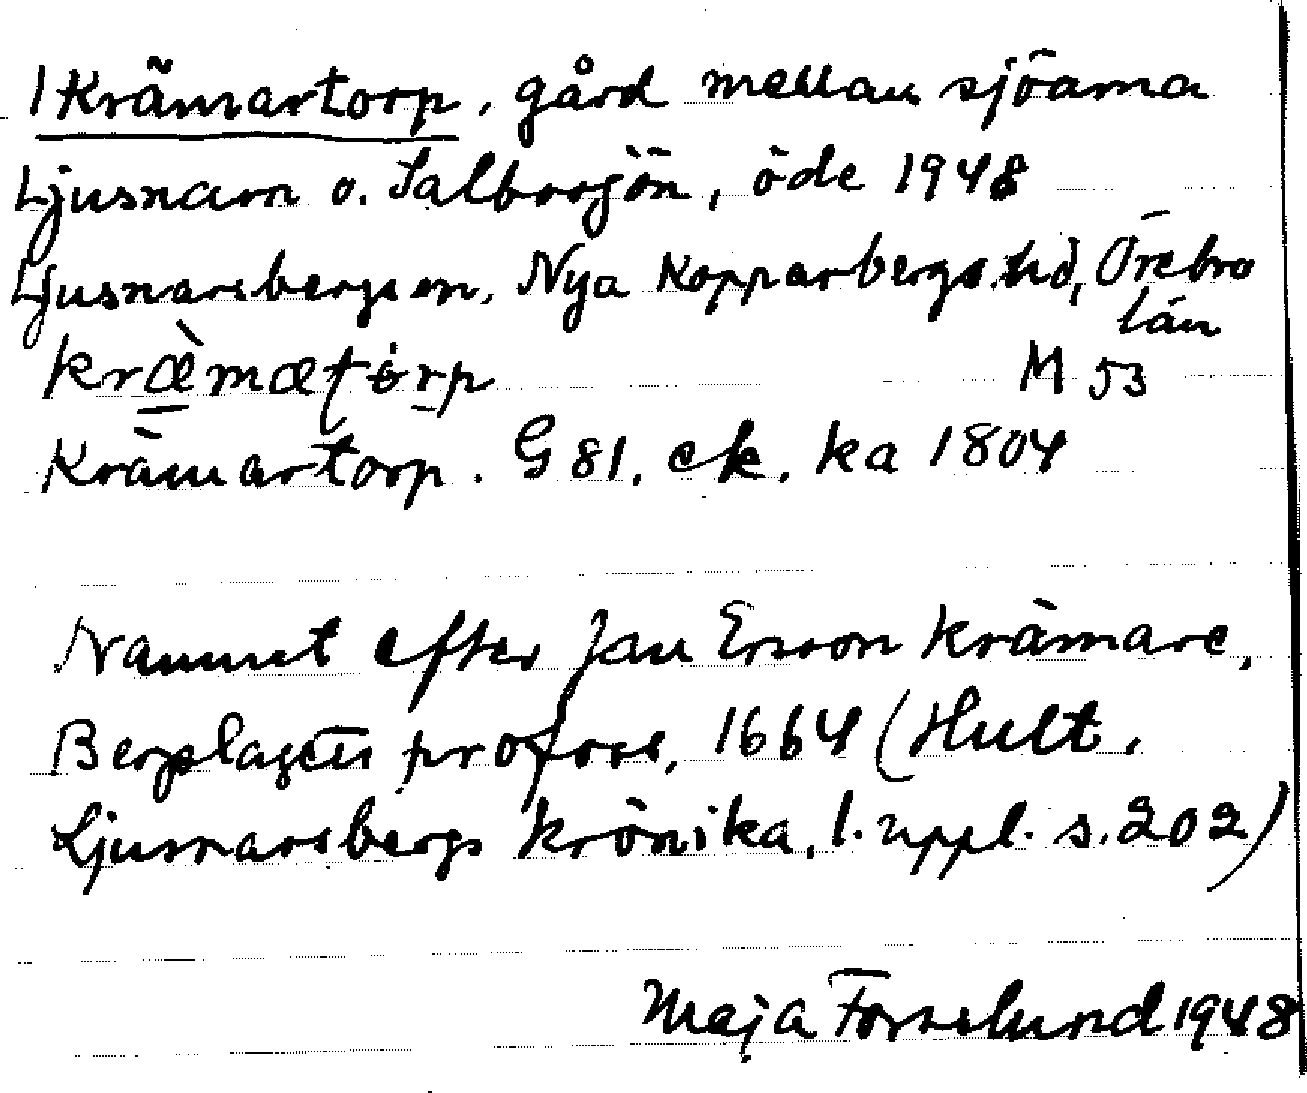 1 Krämartorp, gård mellan sjöarna
Ljusnaren o. Salbosjön, öde 1948
Ljusnarsbergs sn, Nya Kopparbergs hd, Örebro
län
kræ̀mætórp M 53
Krämartorp. G 81. ek. ka 1804
Namnet efter Jan Ersson Krämare,
Bergslagens profoss, 1664 (Hult.
Ljusnarsbergs krönika, 1. uppl. s. 202)
Maja Forsslund 1948